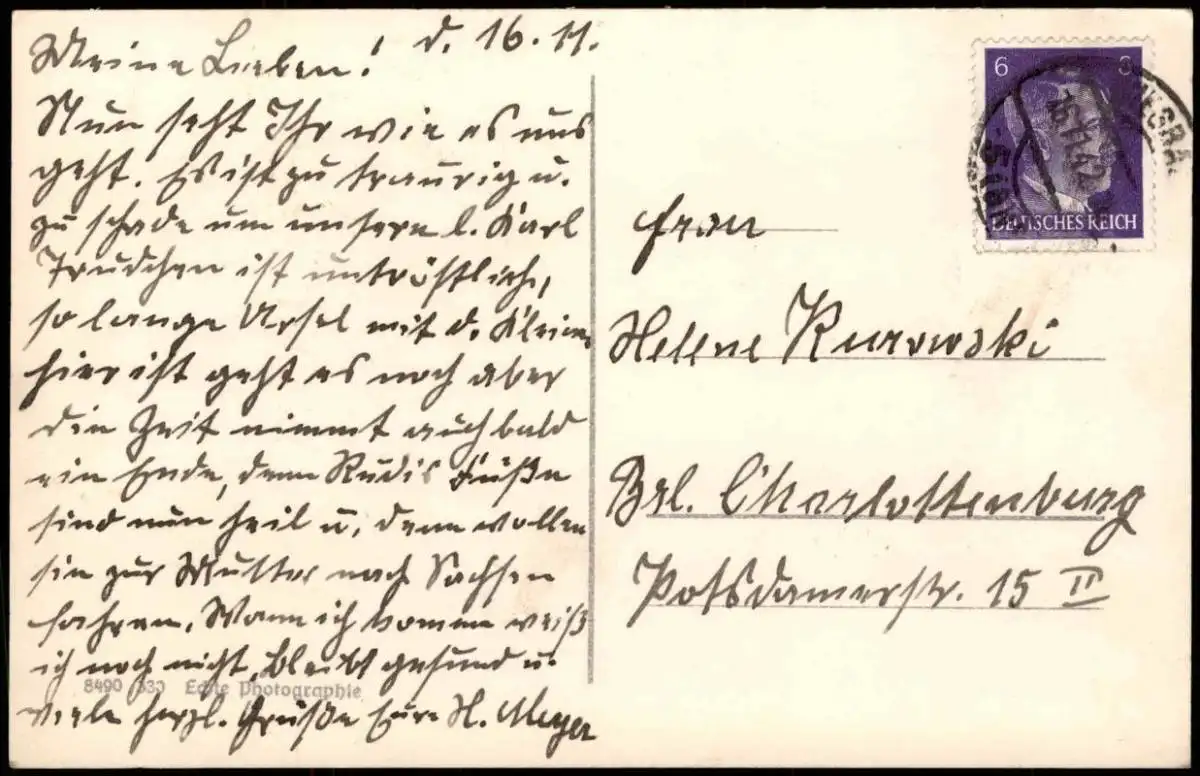 Meine Lieben! d. 16.11.
Nun seht Ihr wie es uns
geht. Es ist zu traurig u.
zu schade um unsern l. Karl
Trudchen ist untröstlich,
so lange Ursel mit d. Kleinen
hier ist geht es noch aber
die Zeit nimmt auch bald
ein Ende, denn Rudis Füße
sind nun heil u. dann wollen
sie zur Mutter nach Sachsen
fahren. Wann ich komme weiß
ich noch nicht, bleibt gesund u.
viele herzl. Grüße Eure H. Meyer
8490 Echte Photographie
6 6
16.11.42
DEUTSCHES REICH
Frau
Helene Kurowski
Brl. Charlottenburg
Potsdamerstr. 15 II